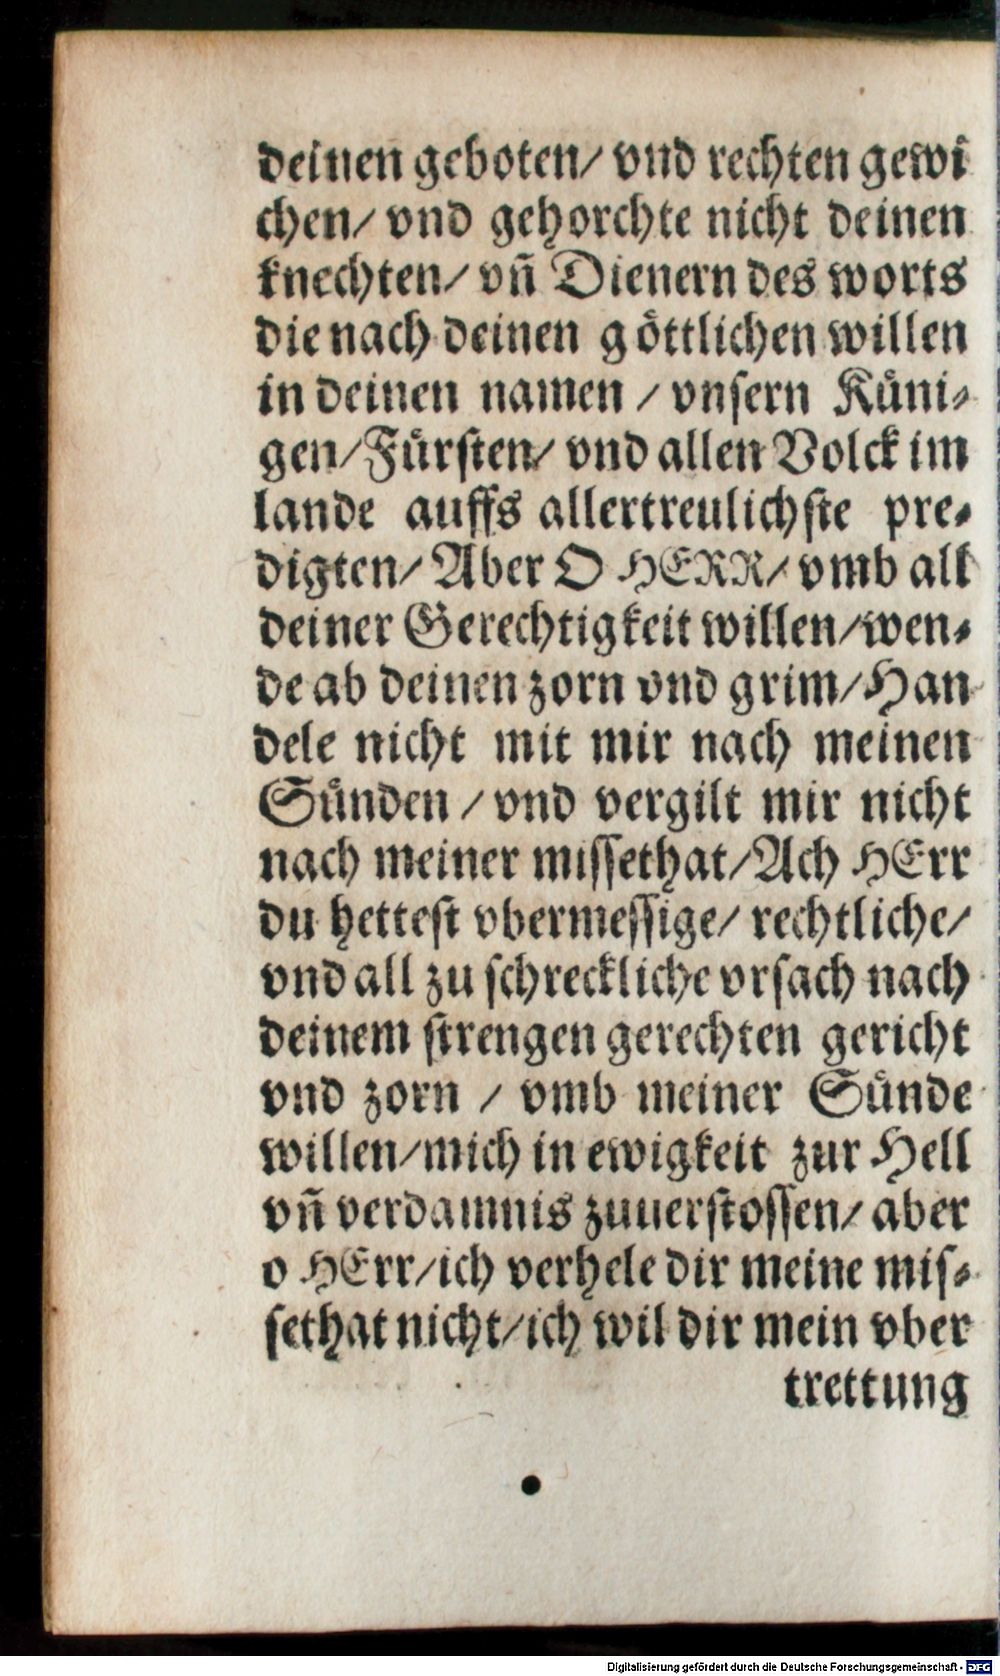 deinen geboten/ vnd rechten gewi
chen/ vnd gehorchte nicht deinen
knechten/ vn̄ Dienern des worts
die nach deinen goͤttlichen willen
in deinen namen / vnsern Kuͤni⸗
gen/Fuͤrsten/ vnd allen Volck im
lande auffs allertreulichste pre⸗
digten/ Aber O HERR/ vmb all
deiner Gerechtigkeit willen/wen⸗
de ab deinen zorn vnd grim/Han
dele nicht mit mir nach meinen
Suͤnden / vnd vergilt mir nicht
nach meiner missethat/Ach HErr
du hettest vbermessige/ rechtliche/
vnd all zu schreckliche vrsach nach
deinem strengen gerechten gericht
vnd zorn / vmb meiner Suͤnde
willen/mich in ewigkeit zur Hell
vn̄ verdamnis zuuerstossen/ aber
o HErr/ich verhele dir meine mis⸗
sethat nicht/ich wil dir mein vber
trettung
Digitalisierung gefördert durch die Deutsche Forschungsgemeinschaft - DFG